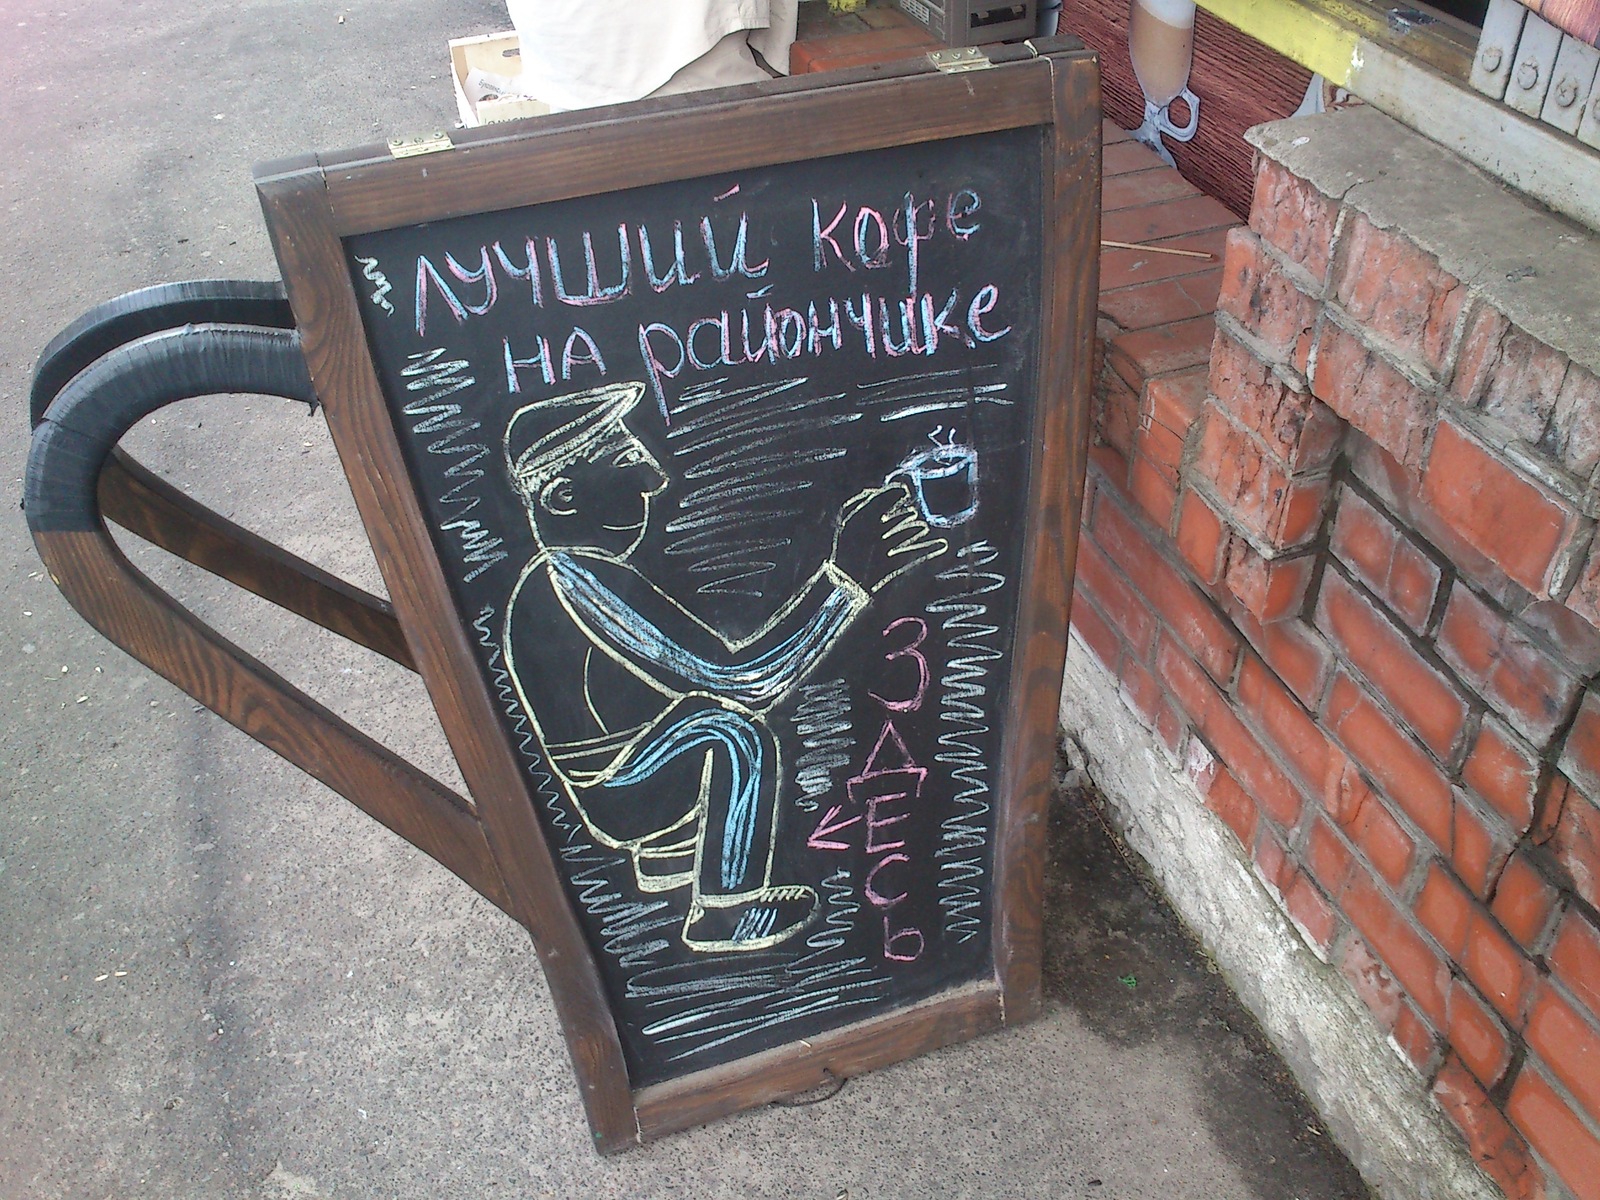 лучший кофе
на райончике
ЗДЕСЬ